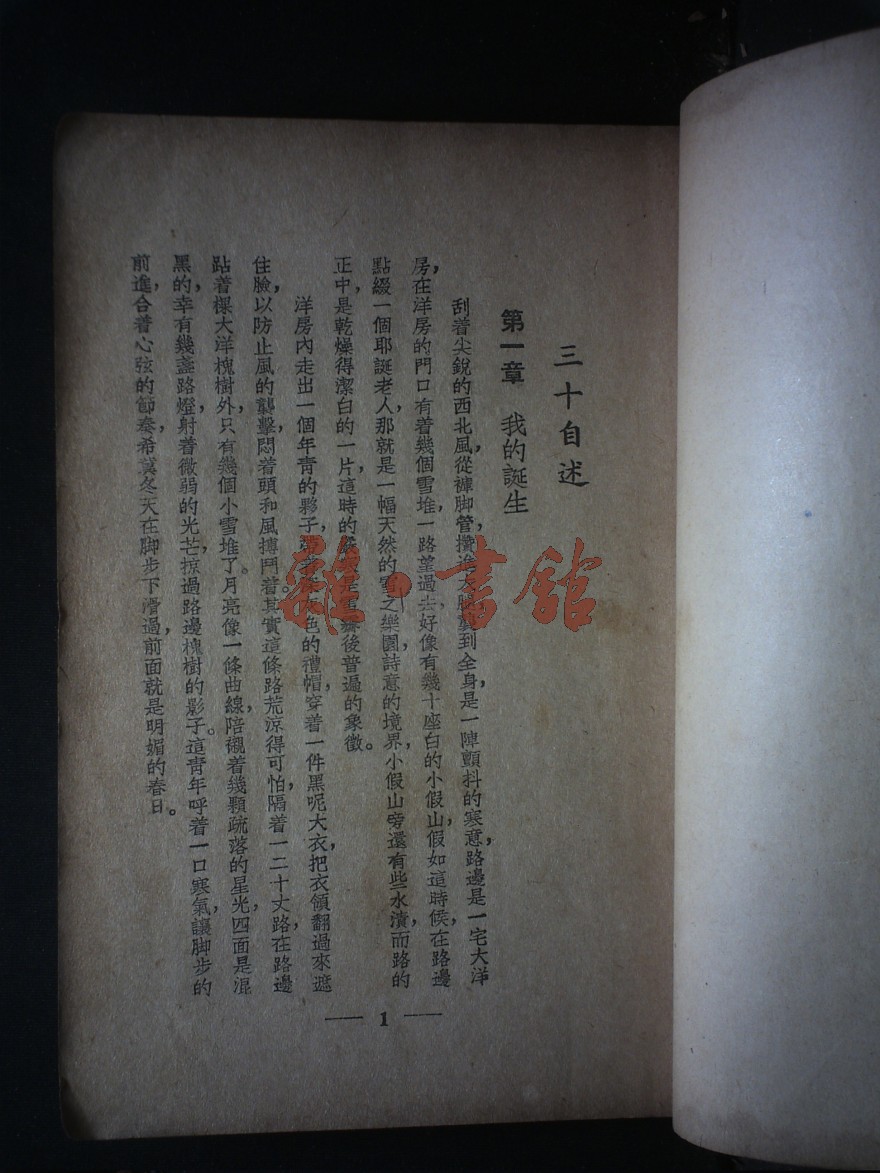 三十自述
第一章 我的誕生
刮着尖銳的西北風，從褲脚管攢到全身，是一陣顫抖的寒意，路邊是一宅大洋
房，在洋房的門口有着幾個雪堆，一路望過去，好像有幾十座白的小假山，假如這時候，在路邊
點綴一個耶誕老人，那就是一幅天然的雪之樂園，詩意的境界，小假山旁還有些水漬，而路的
正中，是乾燥得潔白的一片，這時的是後普遍的象徵。
洋房內走出一個年青的夥子，色的禮帽，穿着一件黑呢大衣，把衣領翻過來遮
住臉，以防止風的襲擊，悶着頭和風搏鬥着。其實這條路荒涼得可怕，隔着一二十丈路，在路邊
跕着樑大洋槐樹外，只有幾個小雪堆了。月亮像一條曲線，陪襯着幾顆疏落的星光，四面是混
黑的，幸有幾盞路燈，射着微弱的光芒，掠過路邊槐樹的影子。這青年呼着一口寒氣，讓脚步的
前進，合着心弦的節奏，希冀冬天在脚步下滑過，前面就是明媚的春日。
— 1 —
雜·書館